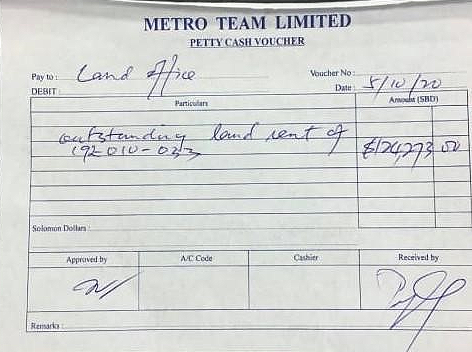 METRO TEAM LIMITED
PETTY CASH VOUCHER
Pay to : Land office
Voucher No :
DEBIT :
Date : 5/10/20
Particulars
Amount (SBD)
outstanding land rent of
192 010-033
$124,273 00
Solomon Dollars :
Approved by
A/C Code
Cashier
Received by
Remarks :